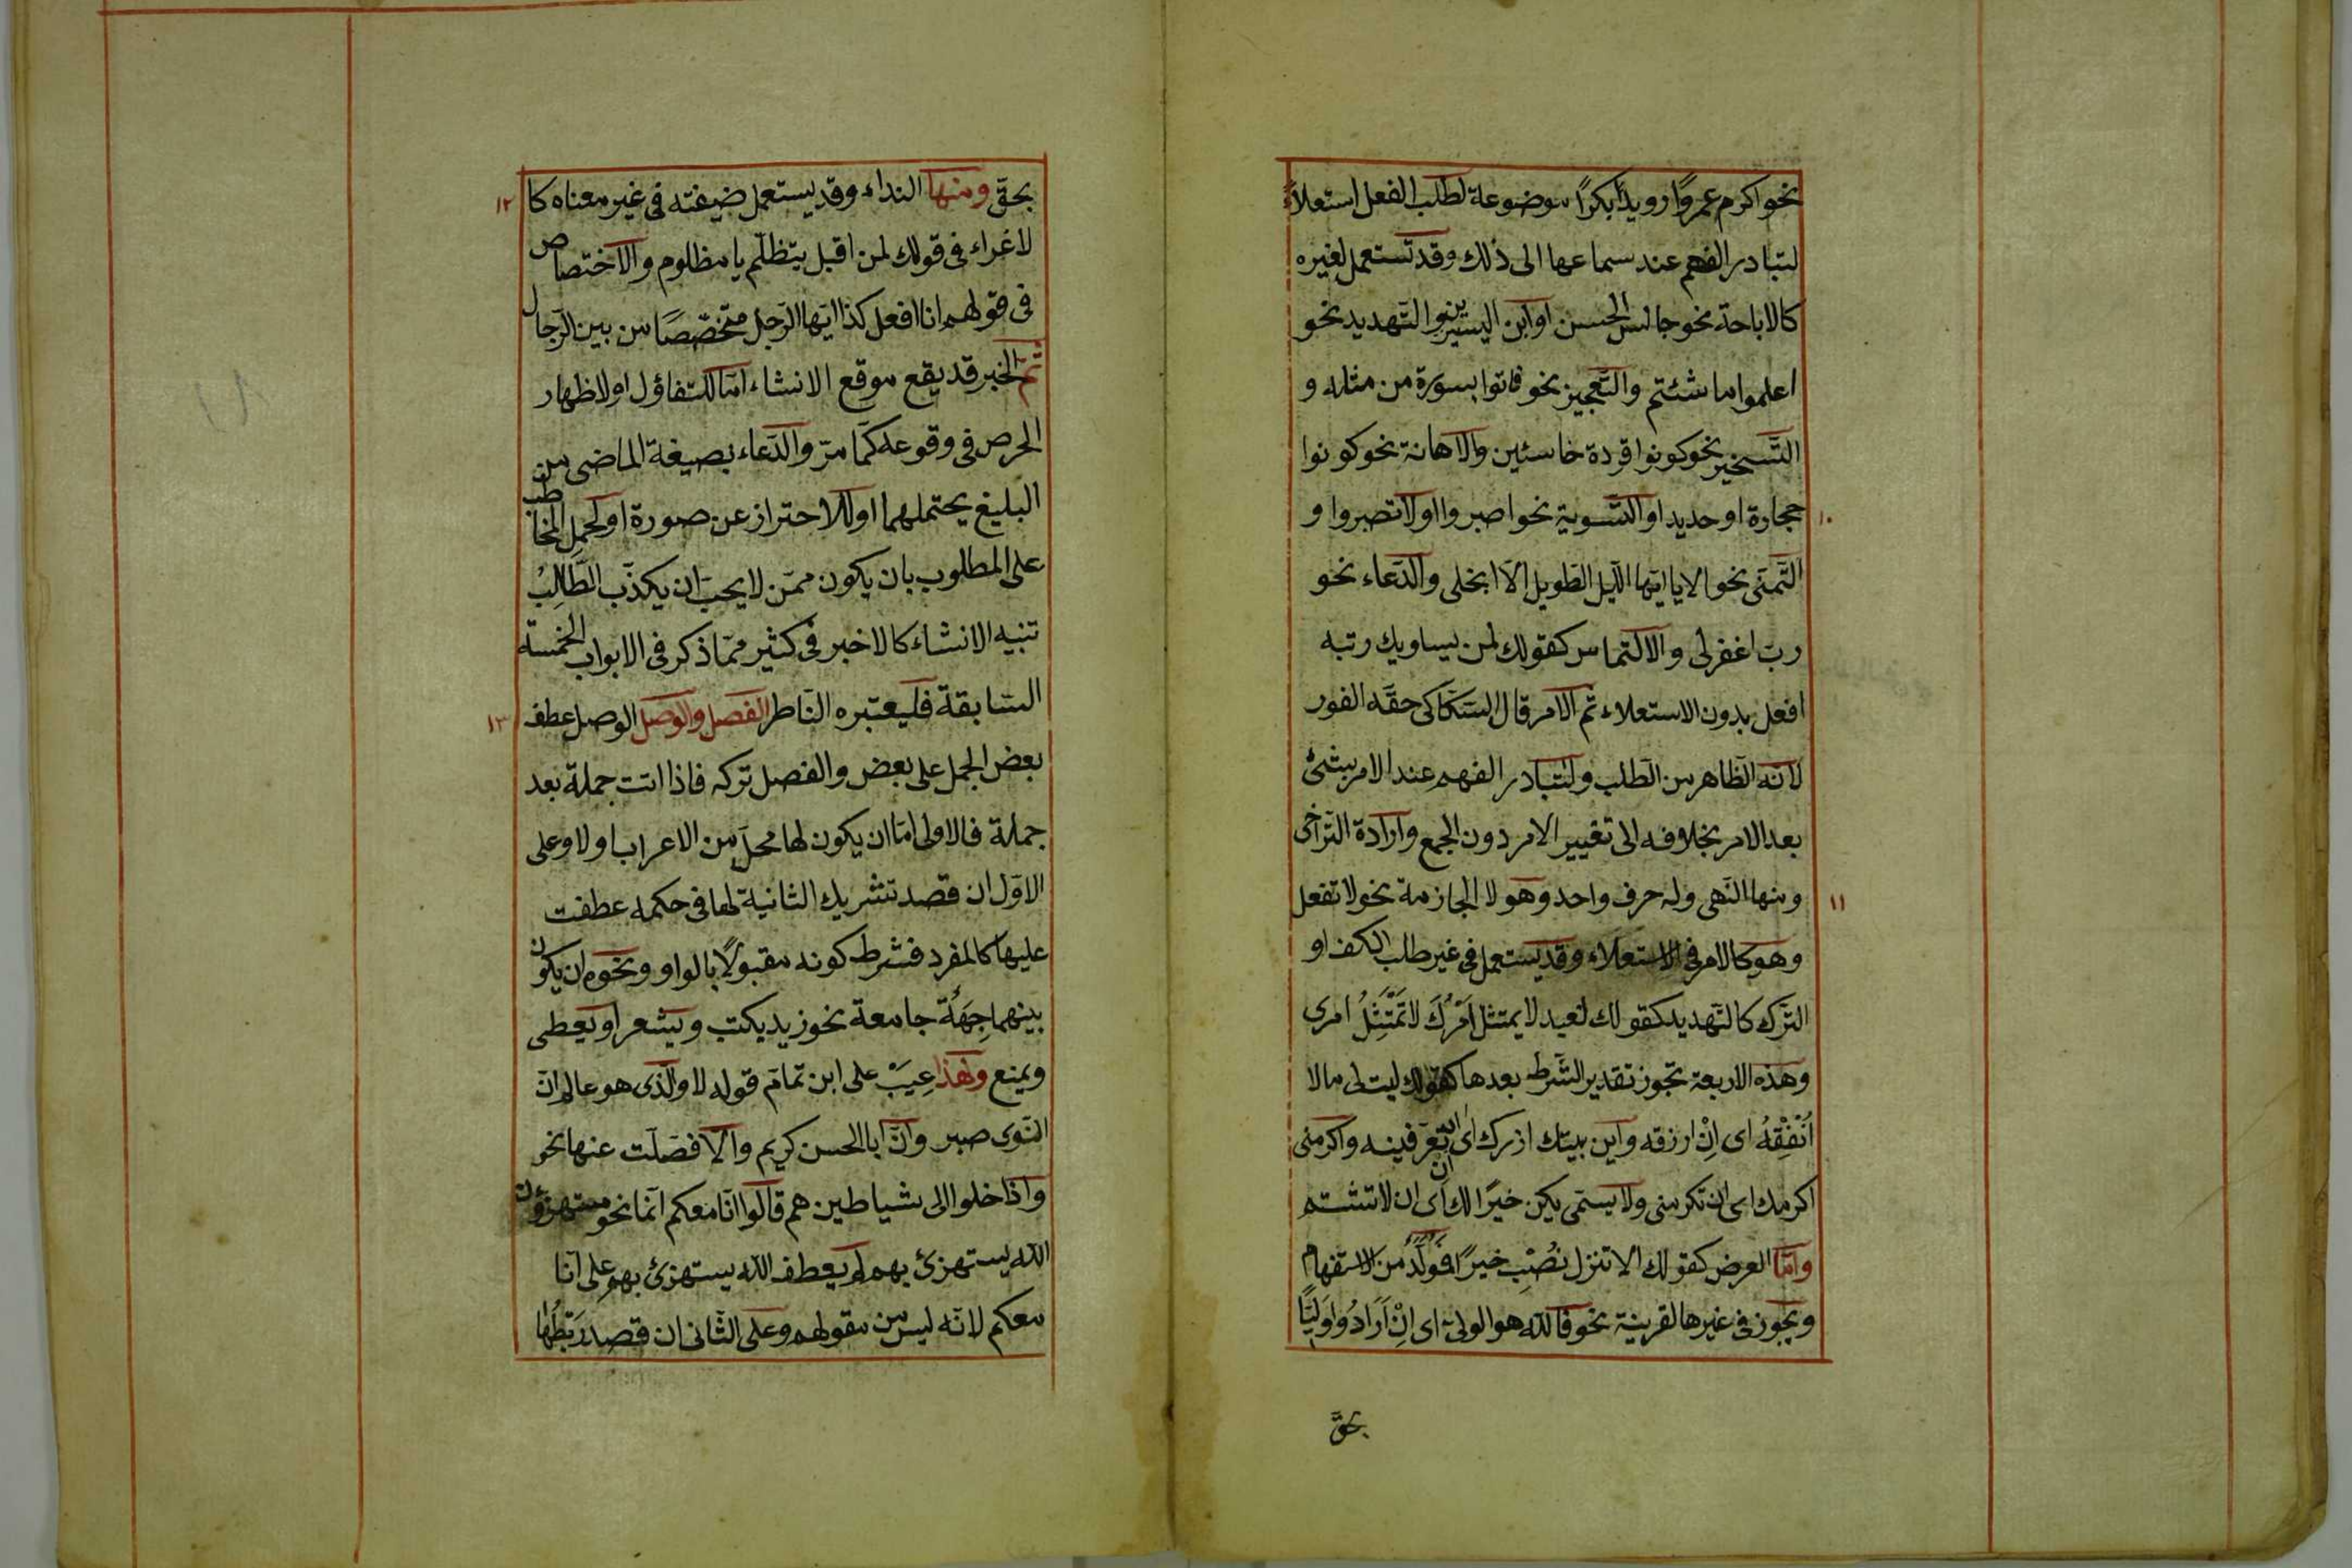 نحو اكرم عمروًا رويدًا بكرًا موضوعة لطلب الفعل استعلاءً
لتبادر الفهم عند سماعها الى ذلك وقد تستعمل لغيره
كالاباحة نحو جالس الحسن او ابن اليسيرين والتّهديد نحو
اعلموا ما شئتم والتّعجيز نحو فاتوا بسورة من مثله و
التّسخير نحو كونوا قردة خاسئين والاهانة نحو كونوا
حجارة او حديدا والتّسوية نحو اصبروا او لا تصبروا و
١٠
التّمنّى نحو الا يا ايّها الّيل الطّويل الّا انجلى والدّعاء نحو
ربّ اغفرلى والالتماس كقولك لمن يساويك رتبه
افعل بدون الاستعلاء ثمّ الامر قال السّكاكى حقّه الفور
لانّه الظّاهر من الطّلب ولتبادر الفهم عند الامر بشئ
بعد الامر بخلافه الى تغيير الامر دون الجمع وارادة التّراخى
ومنها النّهى وله حرف واحد وهو لا الجازمة نحو لا تفعل
١١
وهو كالامر فى الاستعلاء وقد يستعمل فى غير طلب الكف او
التّرك كالتّهديد كقولك لعبد لا يمتثل امرك لا تمتثل امرى
وهذه الاربعة تجوز تقدير الشّرط بعدها كقولك ليت لى مالا
اُنْفِقْهُ اى اِنْ ارزقه واين بيتك ازرك اى ان تعرّفينه واكرمنى
اكرمك اى ان تكرمنى ولا يستمى يكن خيرًا لك اى ان لا تشتم
وامّا العرض كقولك الا تنزل نُصْبِ خيرًا فَولّد من الاستفهام
ويجوز فى غيرها لقرينة نحو فالله هو الولىّ اى اِنْ اَرَادُوا وَلِيًّا
بحقّ
بحقّ ومنها النداء وقد يستعمل ضيغته فى غير معناه كا
١٢
لاغراء فى قولك لمن اقبل يتظلّم يا مظلوم والاختصاص
فى قولهم انا افعل كذا ايّها الرّجل متخصّصًا من بين الرّجال
ثمّ الخبر قد يقع موقع الانشاء امّا للتفاؤل او لاظهار
الحرص فى وقوعه كما مرّ والدّعاء بصيغة الماضى من
البليغ يحتملهما او للاحتراز عن صورة او لحمل المخاطب
على المطلوب بان يكون ممّن لا يحبّ ان يكذّب الطّالِبُ
تنبيه الانشاء كالاخبر فى كثير ممّا ذكر فى الابواب الخمسة
السّابقة فليعتبره النّاظر الفصل والوصل الوصل عطف
١٣
بعض الجمل على بعض والفصل تركه فاذا اتت جملة بعد
جملة فالاولى امّا ان يكون لها محلّ من الاعراب او لا وعلى
الاوّل ان قصد تشريك الثانية لها فى حكمه عطفت
عليها كالمفرد فشرط كونه مقبولًا بالواو ونحوه ان يكون
بينهما جِهَةٌ جامعة نحو زيد يكتب ويشعر او يعطى
ويمنع ولهذا عِيَبْ على ابن تمّام قوله لا والّذى هو عالم انّ
النّوى صبر وانّ ابا الحسن كريم والّا فصّلت عنها نحو
واذا خلوا الى شياطين هم قالوا انّا معكم انّما نحو مستهزؤن
الله يستهزئ بهم لم يعطف الله يستهزئ بهم على انّا
معكم لانّه ليس من مقولهم وعلى الثّانى ان قصد رَبْطُها